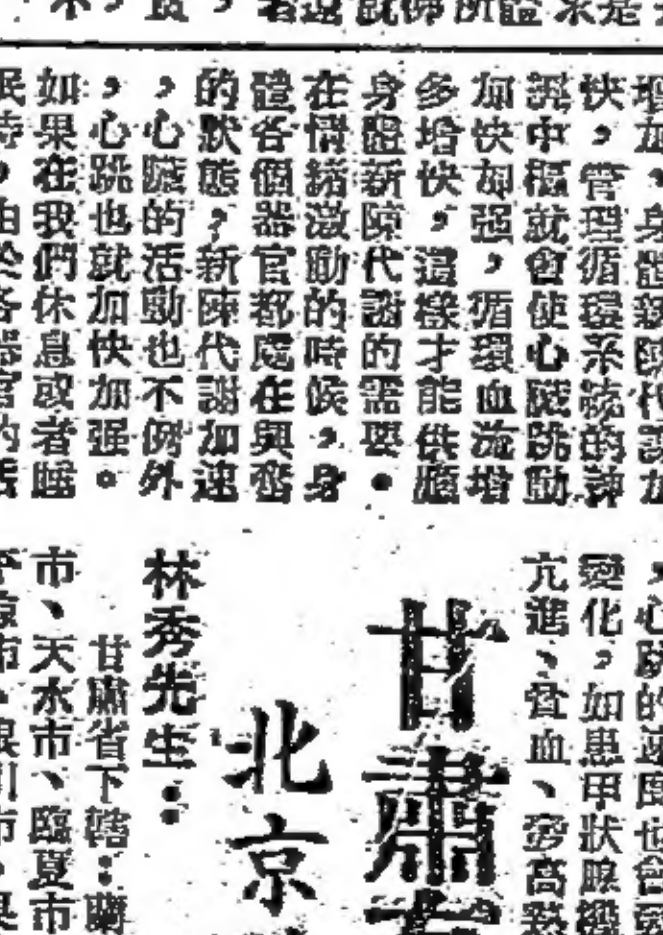 增加，身體新陳代謝加
快，管理循環系統的神
經中樞就會使心臟跳動
加快加强，循環血流增
多增快，這樣才能供應
身體新陳代謝的需要。
在情緒激動的時候，身
體各個器官都處在興奮
的狀態，新陳代謝加速
，心臟的活動也不例外
，心跳也就加快加强。
如果在我們休息或者睡
眠時，由於各器官的活
，心跳的速度也會
變化，如患甲狀腺機
亢進、貧血、發高熱
甘肅
北京
林秀先生：
甘肅省下轄：蘭
市、天水市、臨夏市